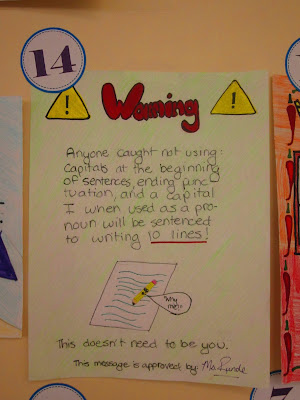 14
! Warning !
Anyone caught not using:
Capitals at the beginning
of sentences, ending punc-
tuation, and a capital
I when used as a pro-
noun will be sentenced
to writing 10 lines!
"Why
me?"
This doesn't need to be you.
This message is approved by: Ms.
7